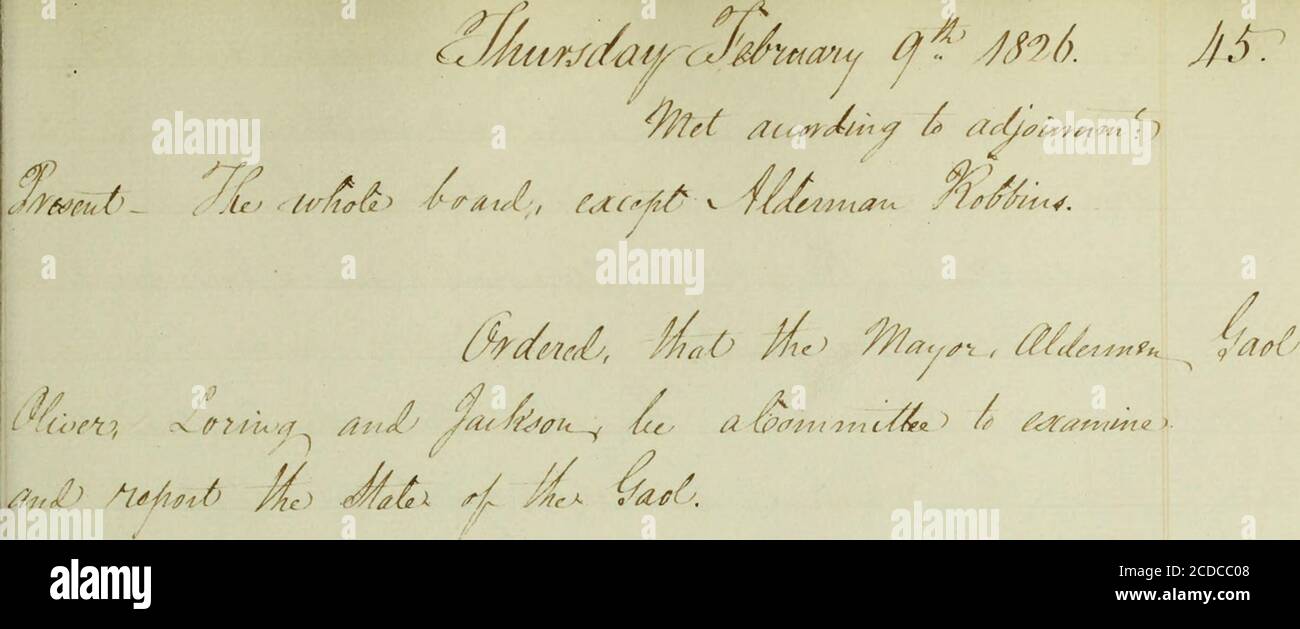 Thursday February 9th 1826. 45.
Met according to adjournmt.
Present - The whole board, except Alderman Robbins.
Ordered, that the Mayor, Aldermen Gaol
Oliver, Loring and Jackson, be a Committee to examine
and report the State of the Gaol.
alamy
Image ID: 2CDCC08
www.alamy.com